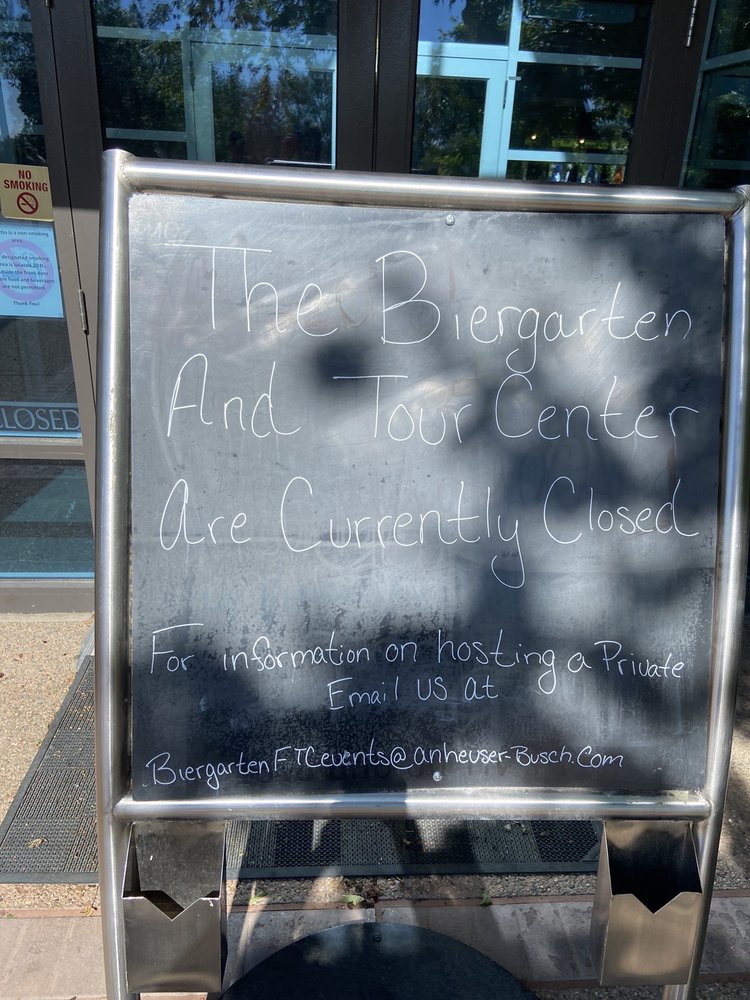 NO
SMOKING
tio is a non-smoking
area.
designated smoking
ea is located 20 ft.
utside the front door
ere food and beverages
are not permitted.
Thank You!
LOSED
The Biergarten
And Tour Center
Are Currently Closed
For information on hosting a Private
Email us at
BiergartenFTCevents@anheuser-Busch.Com